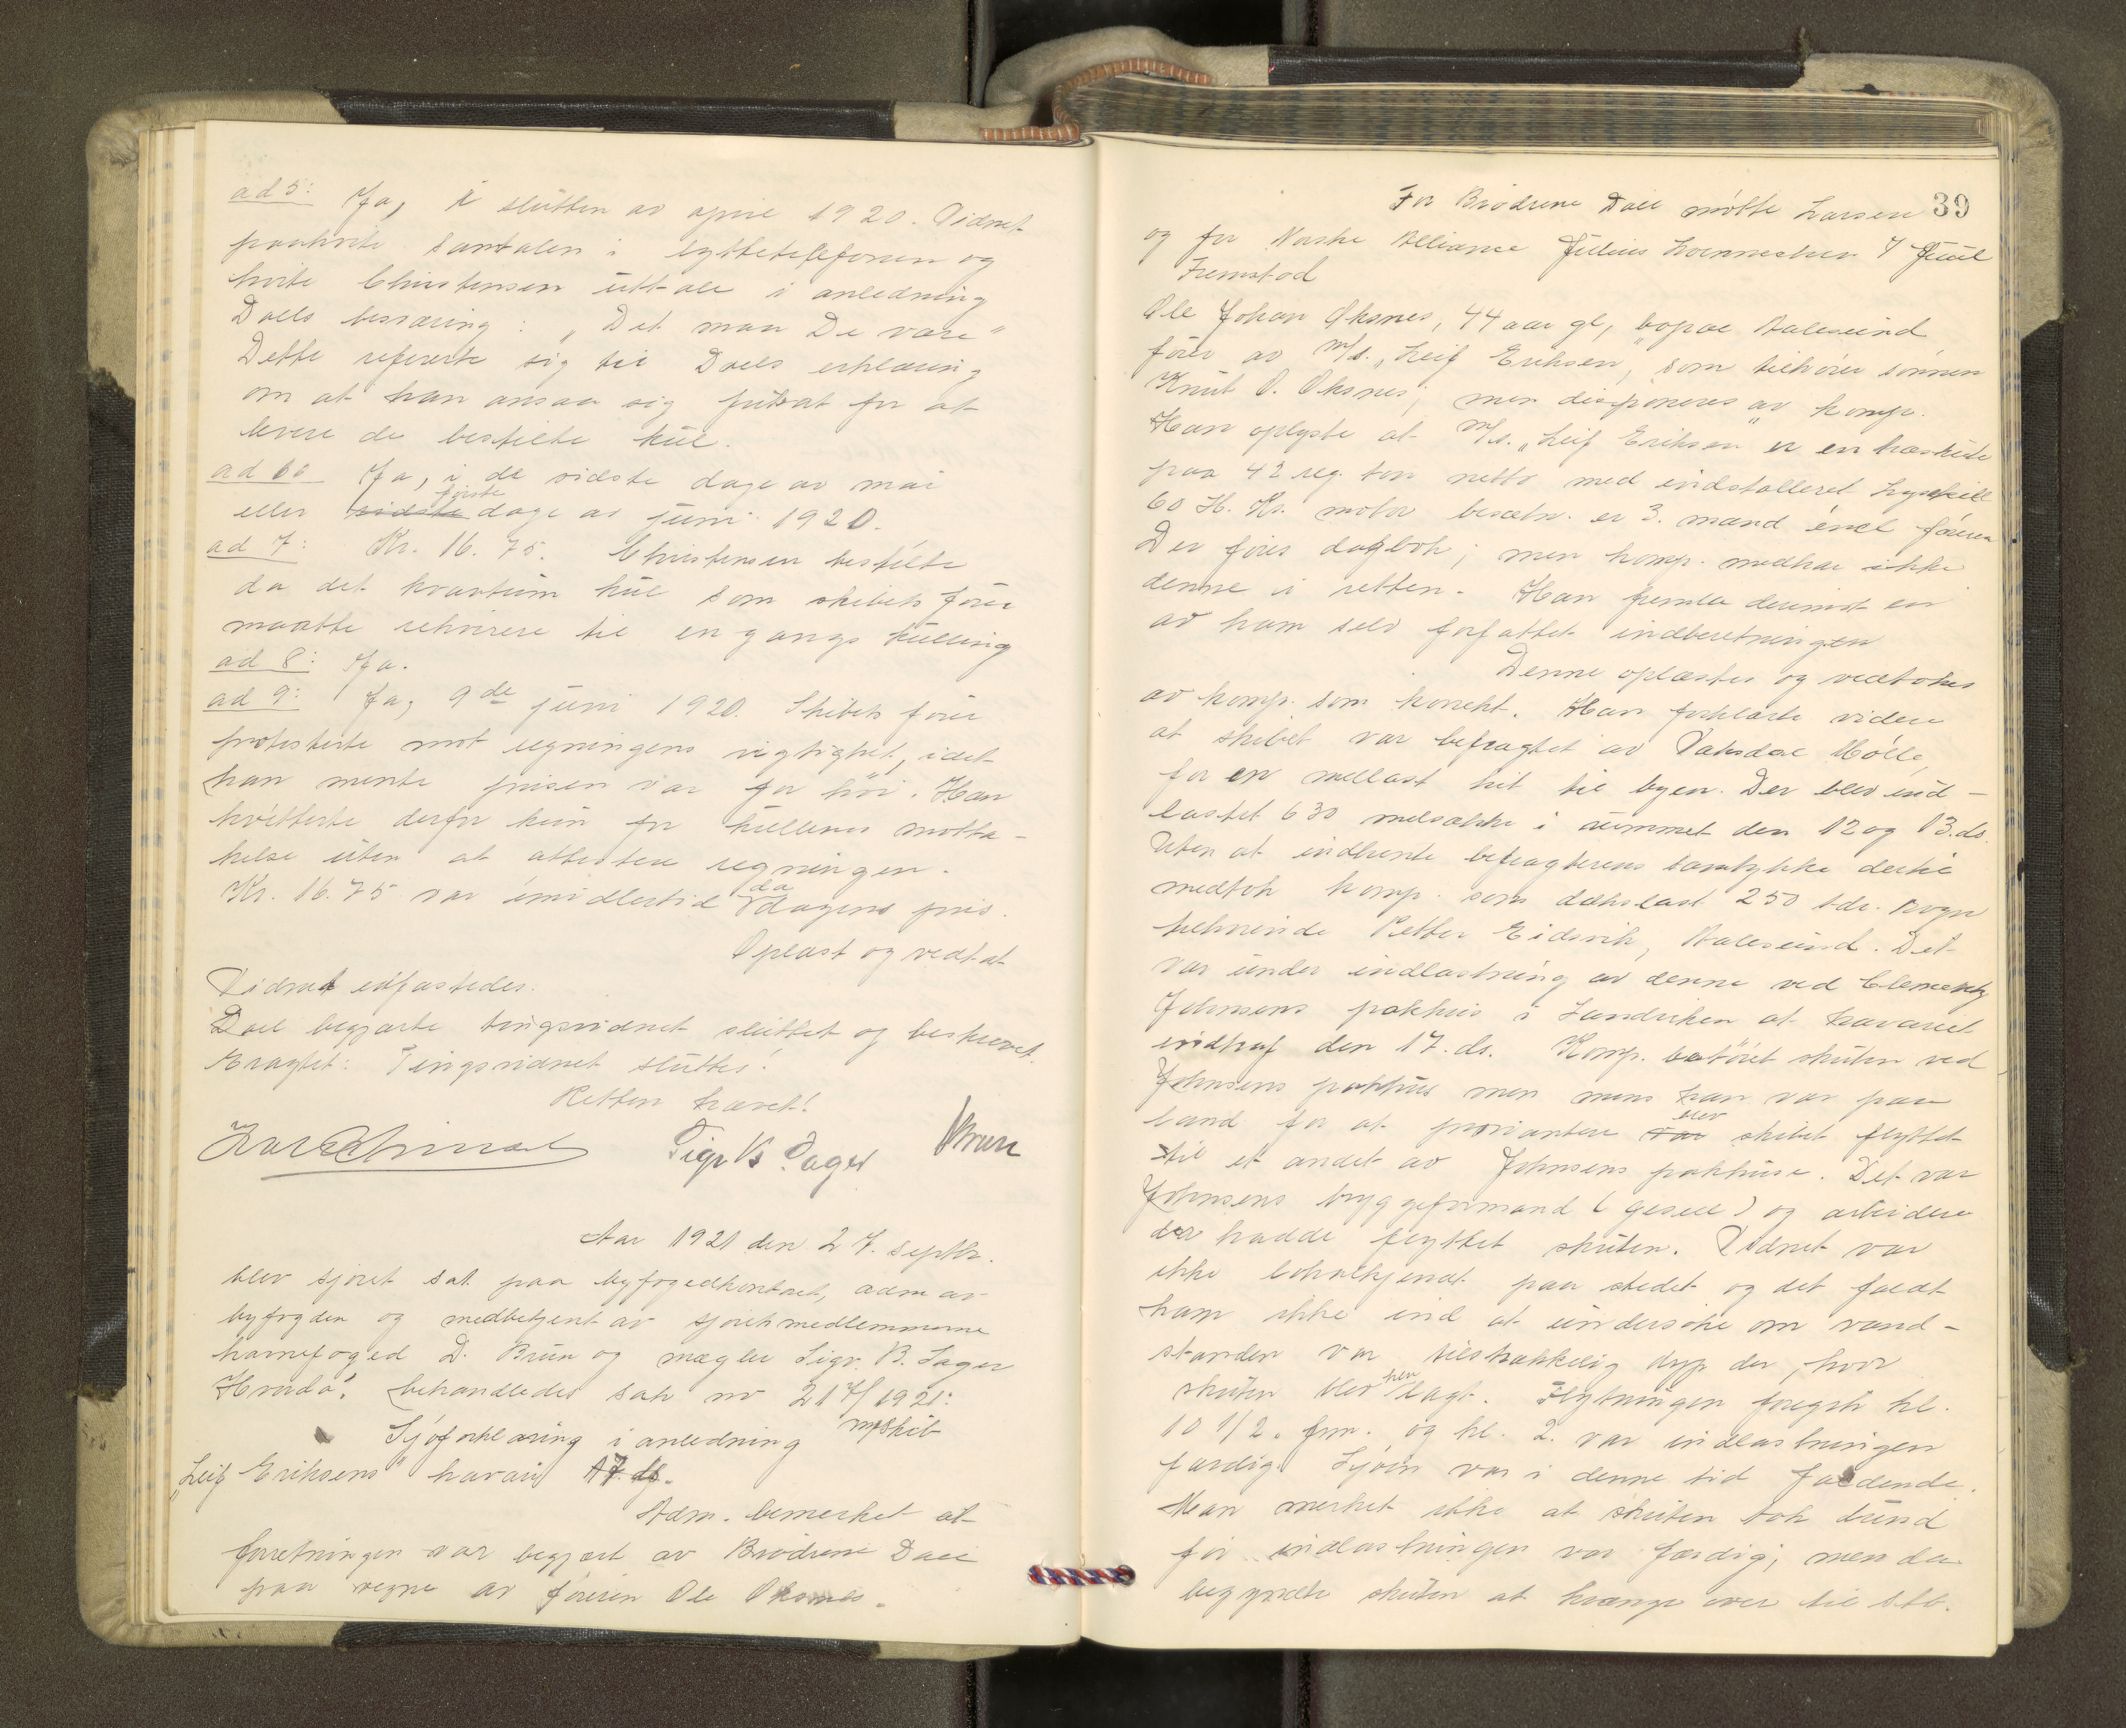 ad 5: Ja, i slutten av april 1920. Vidnet
paahørte samtalen i lyttetelefonen og
hørte Christensen uttale i anledning
Daels besvaring: "Det maa De være"
Dette refererte sig til Daels erklæring
om at han ansaa sig fritat for at
levere de bestilte kul.
ad 6: Ja, i de sidste dage av mai
eller sidste første dage av juni 1920.
ad 7: Kr. 16.75. Christensen bestilte
da det kvantum kul som skibets fører
maatte rekvirere til en gangs kulling
ad 8: Ja.
ad 9: Ja, 9de juni 1920. Skibets fører
protesterte mot regningens rigtighet, idet
han mente prisen var for høi. Han
kvitterte derfor kun for kullenes motta-
kelse uten at attestere regningen.
Kr. 16.75 var imidlertid da dagens pris.
Oplæst og vedtat
Vidnet edfæstedes.
Dael begjærte tingsvidnet sluttet og beskrevet.
Eragtet: Tingsvidnet sluttes!
Retten hævet!
Sigv B. Sager Brun
Aar 1921 den 27. septbr.
blev sjøret sat paa byfogedkontoret, adm av
byfogden og medbetjent av sjøretsmedlemmerne
havnefoged D. Brun og mægler Sigv. B. Sager
Hvorda! behandledes sak nr 217/1921:
Sjøforklaring i anledning m/skib
"Leif Eriksens" havari 17. ds.
Adm. bemerket at
forretningen var begjært av Brødrene Dael
paa vegne av føreren Ole Oksnes.
39
For Brødrene Dael møtte Larsen
og for Norske Alliance Julius
Fremstod
Ole Johan Oksnes, 44 aar gl, bopæl Aalesund
fører av m/s. "Leif Eriksen", som tilhører sønnen
Knut O. Oksnes; men disponeres av komp.
Han oplyste at m/s. "Leif Eriksen" er en træskute
paa 42 reg. ton netto med indstalleret
60 H. Kr. motor besætn. er 3. mand incl føreren
Der føres dagbok; men komp. medhar ikke
denne i retten. Han fremla derimot en
av ham selv forfattet indberetningen
Denne oplæstes og vedtokes
av komp. som korrekt. Han forklarte videre
at skibet var befragtet av Vaksdal Mølle,
for en mellast hit til byen. Der blev ind-
lastet 630 melsække i rummet den 12 og 13. ds.
Uten at indhente befragterens samtykke dertil
medtok komp. som dækslast 250 tdr. rogn
tilhørende Petter Eidsvik, Aalesund. Det
var under indlastning av denne ved Clements
Johnsens pakhus i Sandviken at havariet
indtraf den 17. ds. Komp. fortøiet skuten ved
Johnsens pakhus men mens han var paa
land for at proviantere var blev skibet flyttet
til et andet av Johnsens pakhuse. Det var
Johnsens bryggeformand (gesell) og arbeidere
der hadde flyttet skuten. Vidnet var
ikke lokalkjendt paa stedet og det faldt
ham ikke ind at undersøke om vand-
standen var tilstrækkelig dyp der, hvor
skuten blev hen lagt. Flytningen foregik kl.
10 1/2. fm. og kl. 2. var indlastningen
færdig. Sjøen var i denne tid faldende.
Man merket ikke at skuten tok bund
før indlastningen var færdig; men da
begyndte skuten at krænge over til Stb.